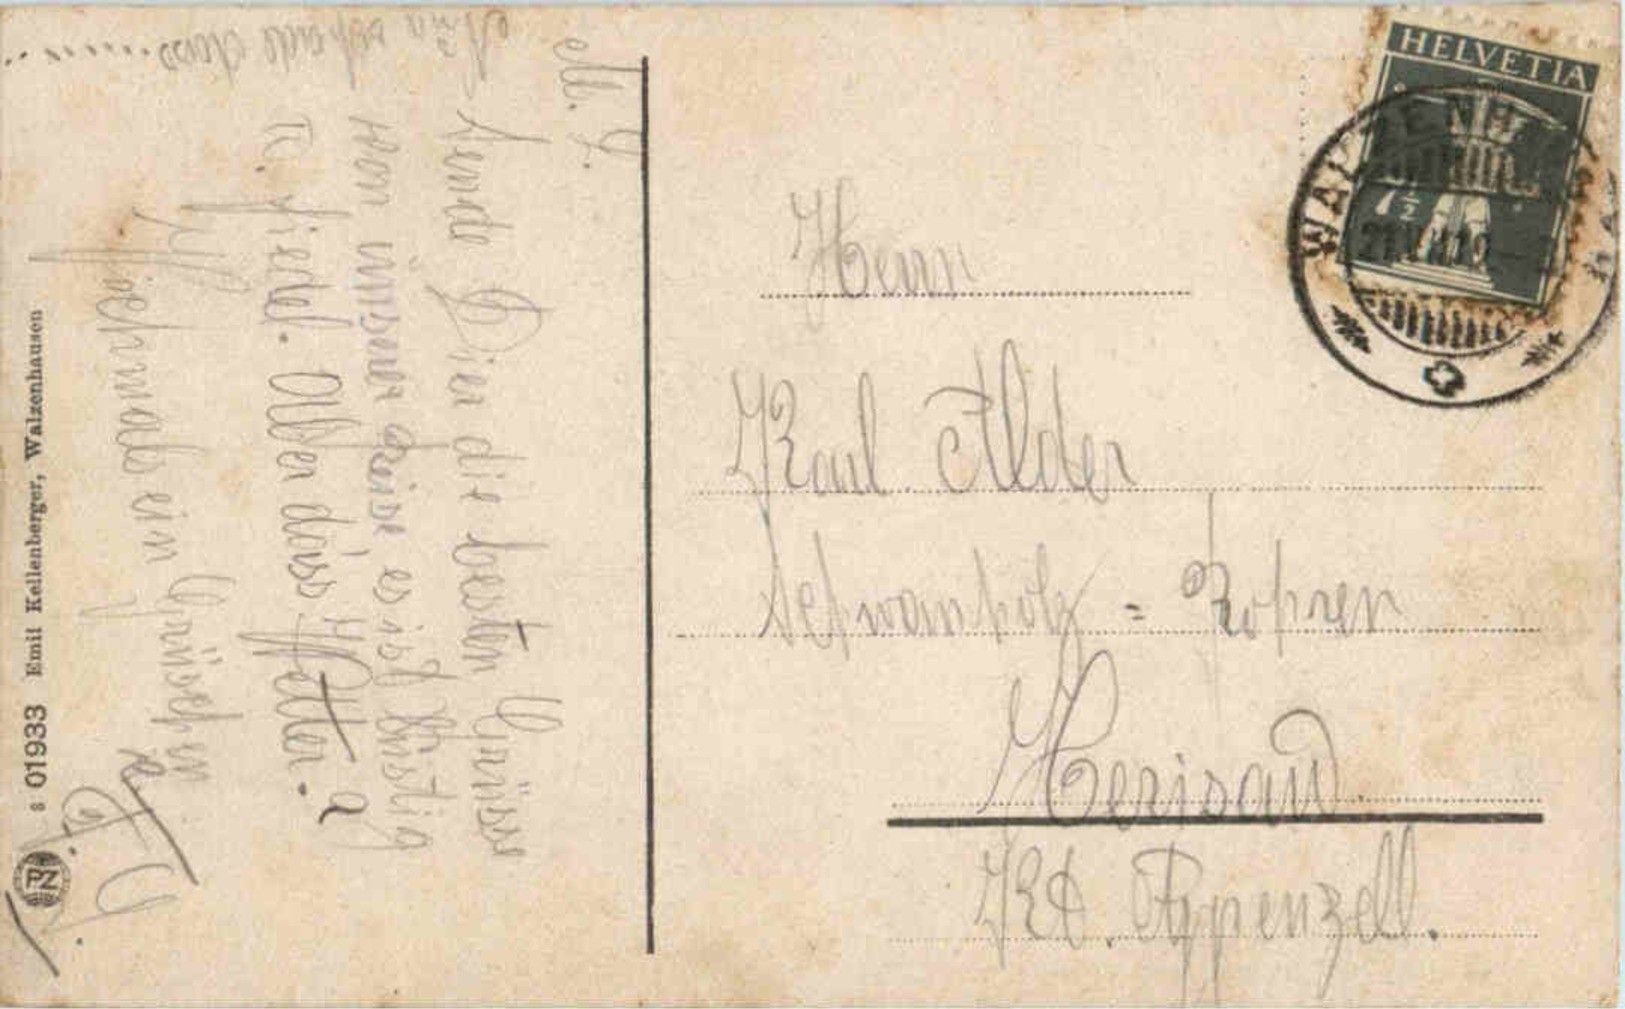 HELVETIA
7½
WALZENH
Herrn
Karl Alder
Schwanholz =
Herisau
Kt. Appenzell.
M. L.
Sende Dier die besten Grüsse
von unserer Reise es ist lustig
u. fidel. Aber das Wetter.
Nochmals ein Grüschen
schade dass
8 01933 Emil Kellenberger, Walzenhausen
PZ